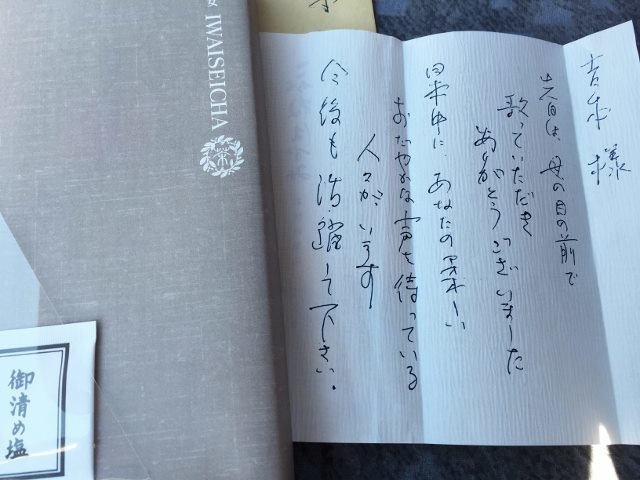 吉本 様
六日は、母の目の前で
歌っていただき
ありがとうございました
日本中に、あなたの楽しい
おだやかな声を待っている
人々がいます
今後も活躍して下さい。
IWAISEICHA
御清め塩